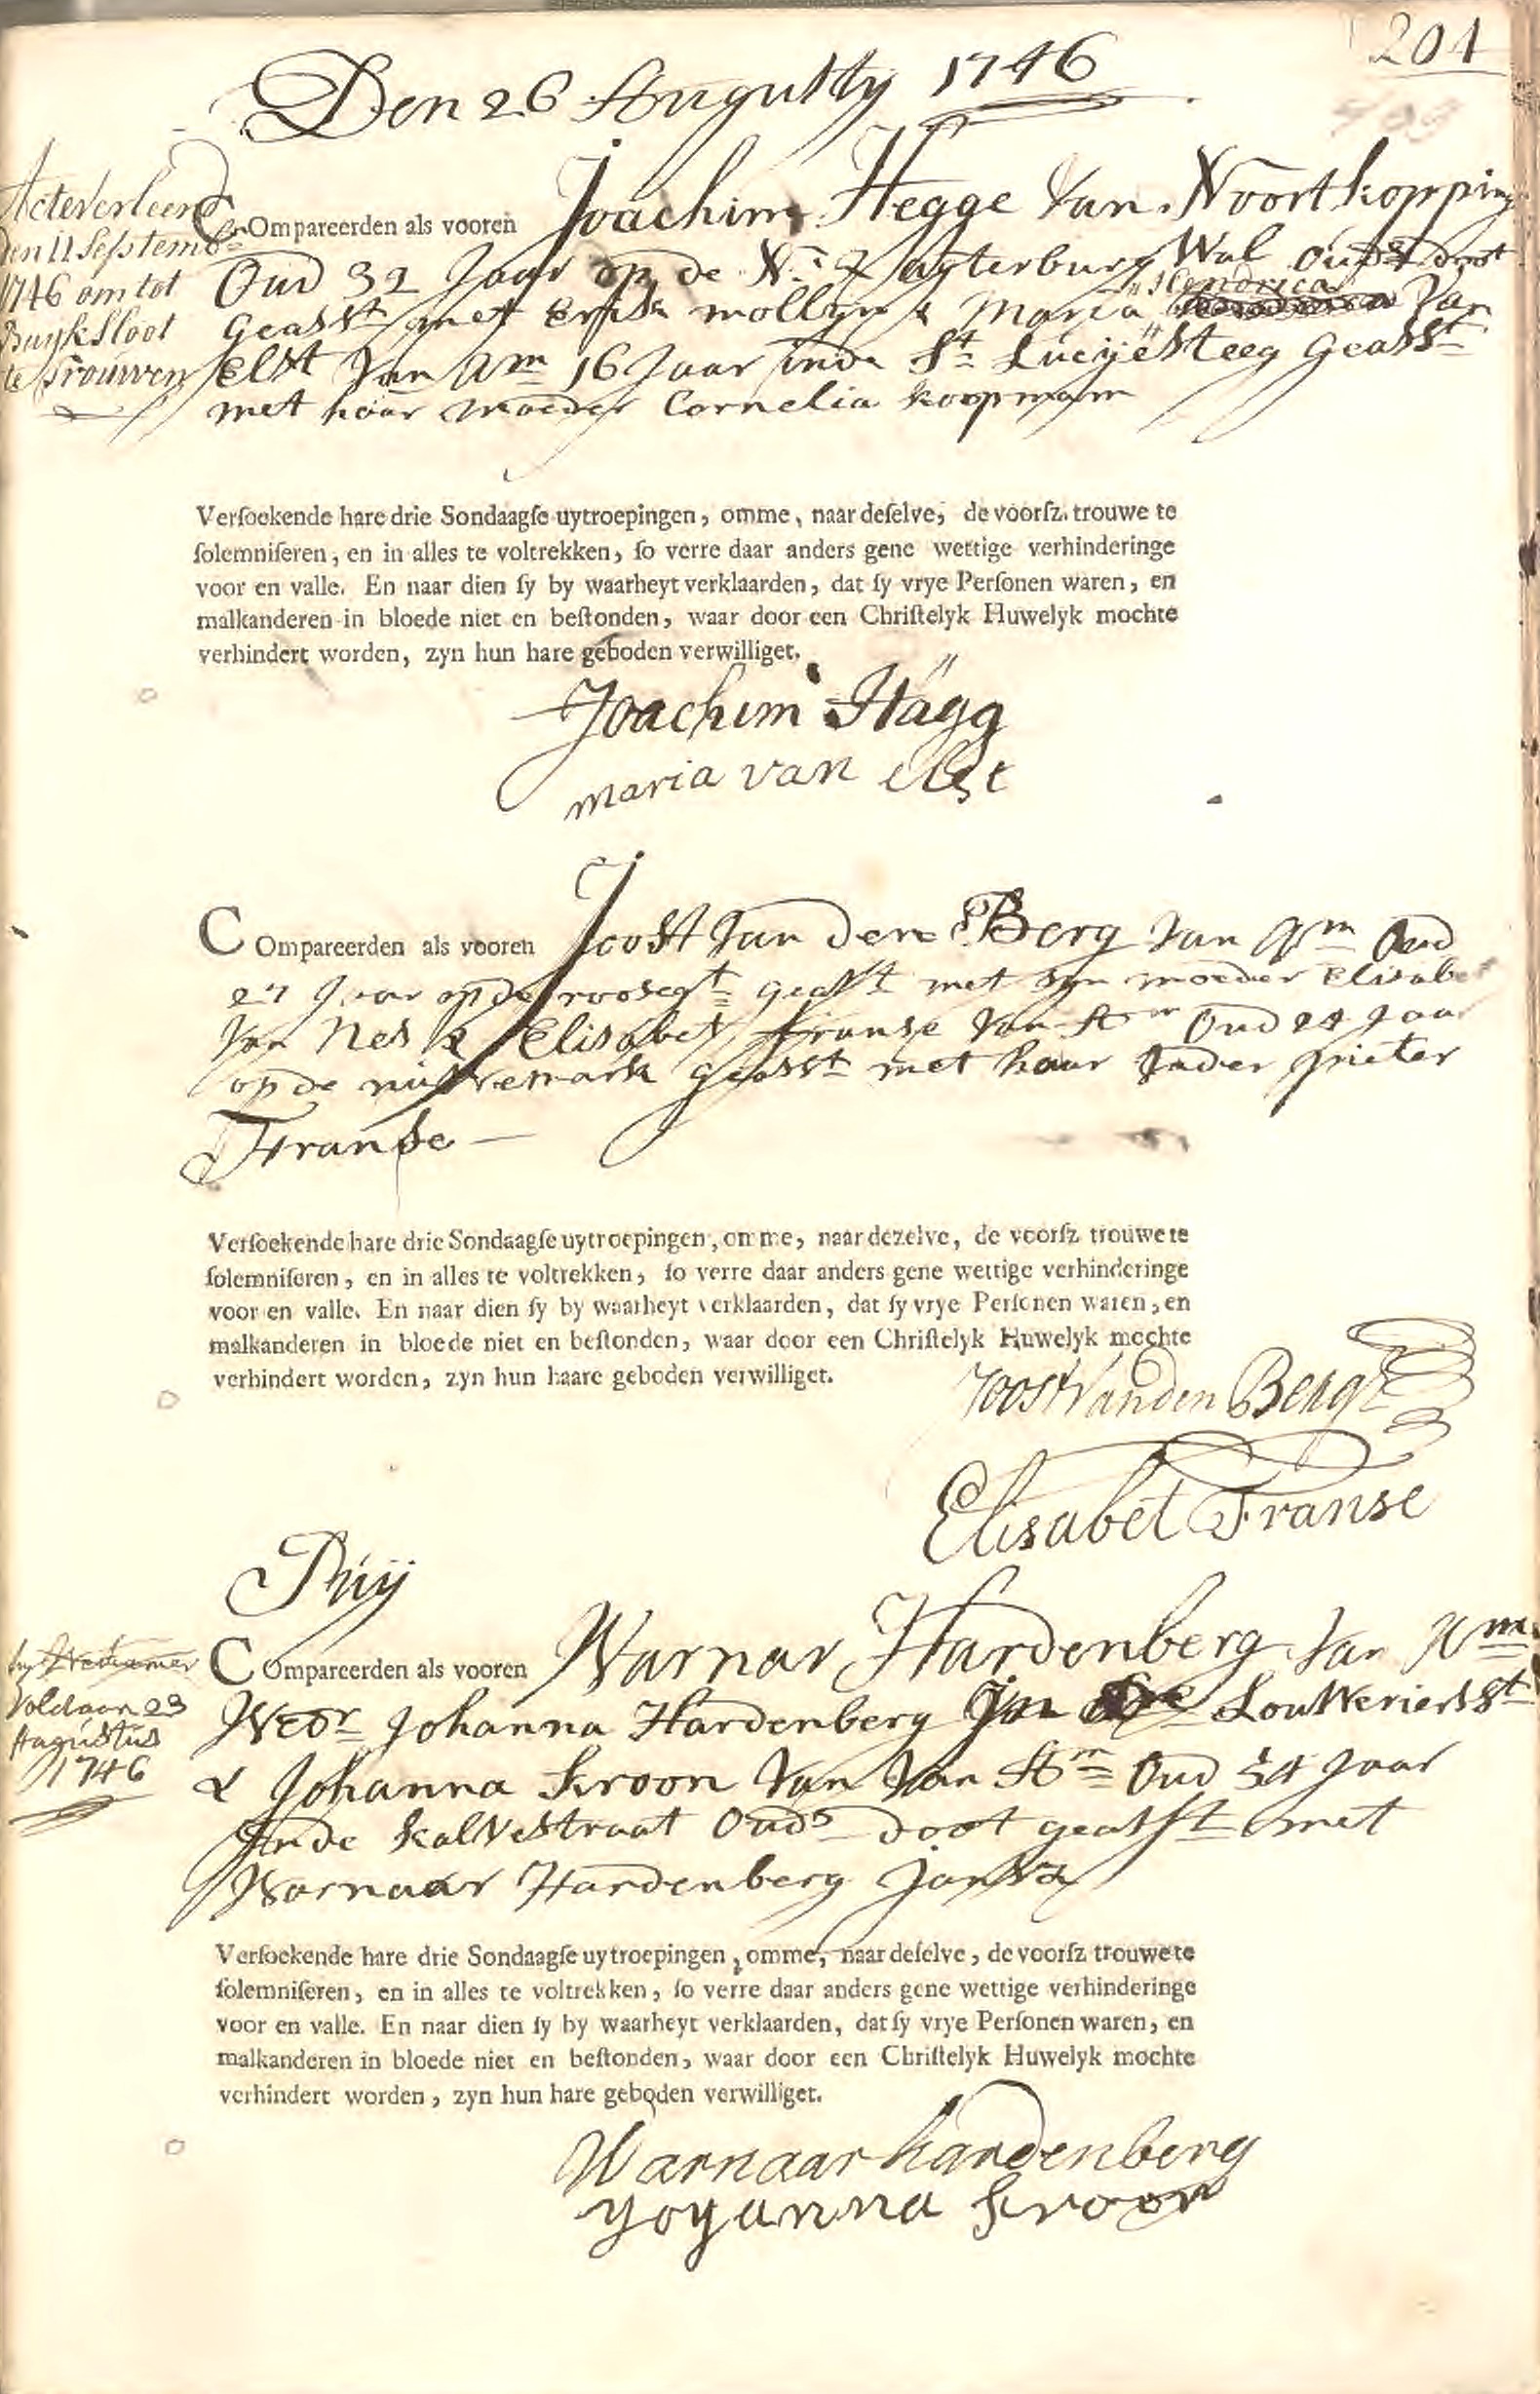 201
Den 26 Augusty 1746
Acte verleend
den 11 Septemb
1746 om tot
Buyksloot
te trouwen
Compareerden als vooren Joachim Hegge van Noortkopping
Oud 32 Jaar op de N: Z agterburg Wal ouds doot
geasst met Erik mollyn & Maria Hendrica van
Elst van Am 16 Jaar inde St Lucyesteeg geasst
met haar moeder Cornelia koopman
Versoekende hare drie Sondaagse uytroepingen, omme, naar deselve, de voorsz. trouwe te
solemniseren, en in alles te voltrekken, so verre daar anders gene wettige verhinderinge
voor en valle. En naar dien sy by waarheyt verklaarden, dat sy vrye Personen waren, en
malkanderen in bloede niet en bestonden, waar door een Christelyk Huwelyk mochte
verhindert worden, zyn hun hare geboden verwilliget.
Joachim Hägg
maria van elst
Compareerden als vooren Joost van den Berg van Am Oud
27 Jaar op de roosegt geasst met syn moeder Elisabet
van Nes & Elisabet Franse van Am Oud 24 Jaar
op de nieuwemark geasst met haar vader pieter
Franse
Versoekende hare drie Sondaagse uytroepingen, omme, naar dezelve, de voorsz trouwe te
solemniseren, en in alles te voltrekken, so verre daar anders gene wettige verhinderinge
voor en valle. En naar dien sy by waarheyt verklaarden, dat sy vrye Personen waren, en
malkanderen in bloede niet en bestonden, waar door een Christelyk Huwelyk mochte
verhindert worden, zyn hun haare geboden verwilliget.
Joost Vanden Bergh
Elisabet Franse
Puij
Weskamer
Voldaan 23
Augustus
1746
Compareerden als vooren Warnar Hardenberg van Am
Wedr Johanna Hardenberg Louwerierssst
& Johanna Kroon van van Am Oud 54 Jaar
Inde kalvestraat Ouds doot geasst met
Warnaar Hardenberg Jansz
Versoekende hare drie Sondaagse uytroepingen, omme, naar deselve, de voorsz trouwe te
solemniseren, en in alles te voltrekken, so verre daar anders gene wettige verhinderinge
voor en valle. En naar dien sy by waarheyt verklaarden, dat sy vrye Personen waren, en
malkanderen in bloede niet en bestonden, waar door een Christelyk Huwelyk mochte
verhindert worden, zyn hun hare geboden verwilliget.
Warnaar hardenberg
yoyanna kroon